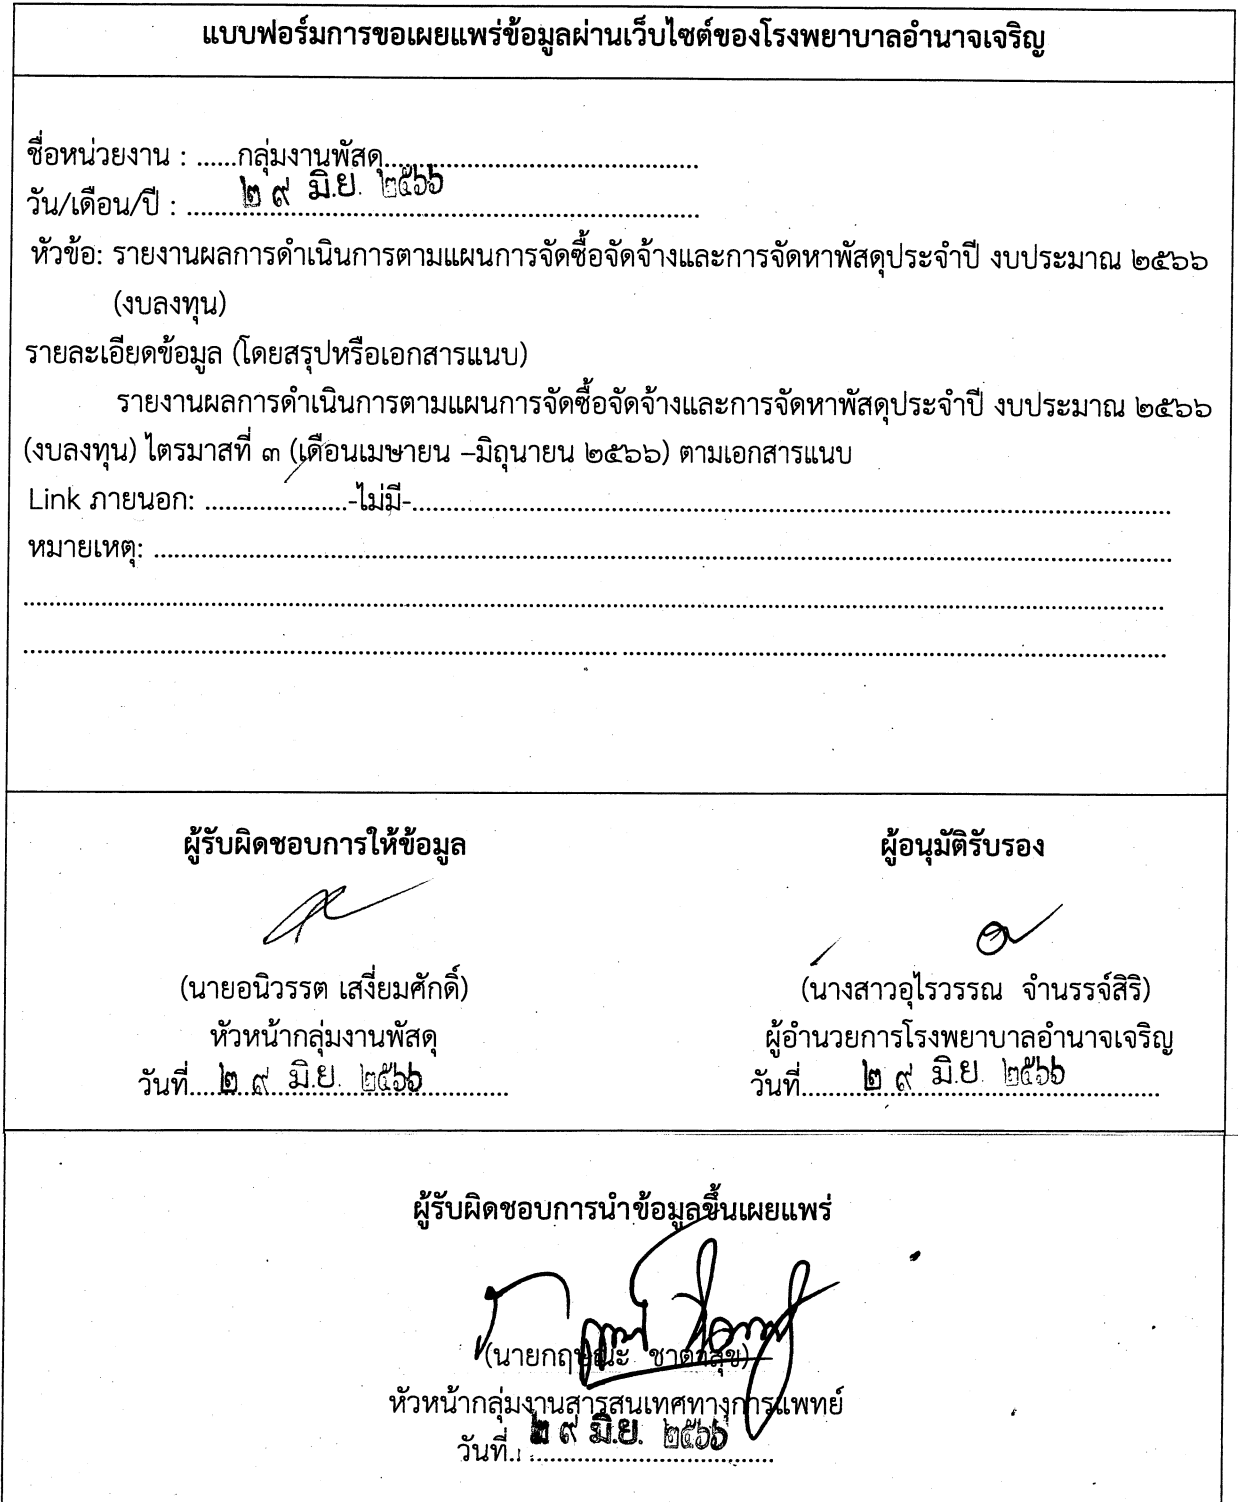 แบบฟอร์มการขอเผยแพร่ข้อมูลผ่านเว็บไซต์ของโรงพยาบาลอำนาจเจริญ
ชื่อหน่วยงาน : ......กลุ่มงานพัสดุ............................................
วัน/เดือน/ปี : ......๒ ๙ มิ.ย. ๒๕๖๖............................................
หัวข้อ: รายงานผลการดำเนินการตามแผนการจัดซื้อจัดจ้างและการจัดหาพัสดุประจำปี งบประมาณ ๒๕๖๖
(งบลงทุน)
รายละเอียดข้อมูล (โดยสรุปหรือเอกสารแนบ)
รายงานผลการดำเนินการตามแผนการจัดซื้อจัดจ้างและการจัดหาพัสดุประจำปี งบประมาณ ๒๕๖๖
(งบลงทุน) ไตรมาสที่ ๓ (เดือนเมษายน –มิถุนายน ๒๕๖๖) ตามเอกสารแนบ
Link ภายนอก: ....................-ไม่มี-............................................
หมายเหตุ: ............................................
ผู้รับผิดชอบการให้ข้อมูล
(นายอนิวรรต เสงี่ยมศักดิ์)
หัวหน้ากลุ่มงานพัสดุ
วันที่....๒ ๙ มิ.ย. ๒๕๖๖............
ผู้อนุมัติรับรอง
(นางสาวอุไรวรรณ จำนรรจ์สิริ)
ผู้อำนวยการโรงพยาบาลอำนาจเจริญ
วันที่........๒ ๙ มิ.ย. ๒๕๖๖............
ผู้รับผิดชอบการนำข้อมูลขึ้นเผยแพร่
(นายกฤษณะ
หัวหน้ากลุ่มงานสารสนเทศทางการแพทย์
วันที่..๒ ๙ มิ.ย. ๒๕๖๖............